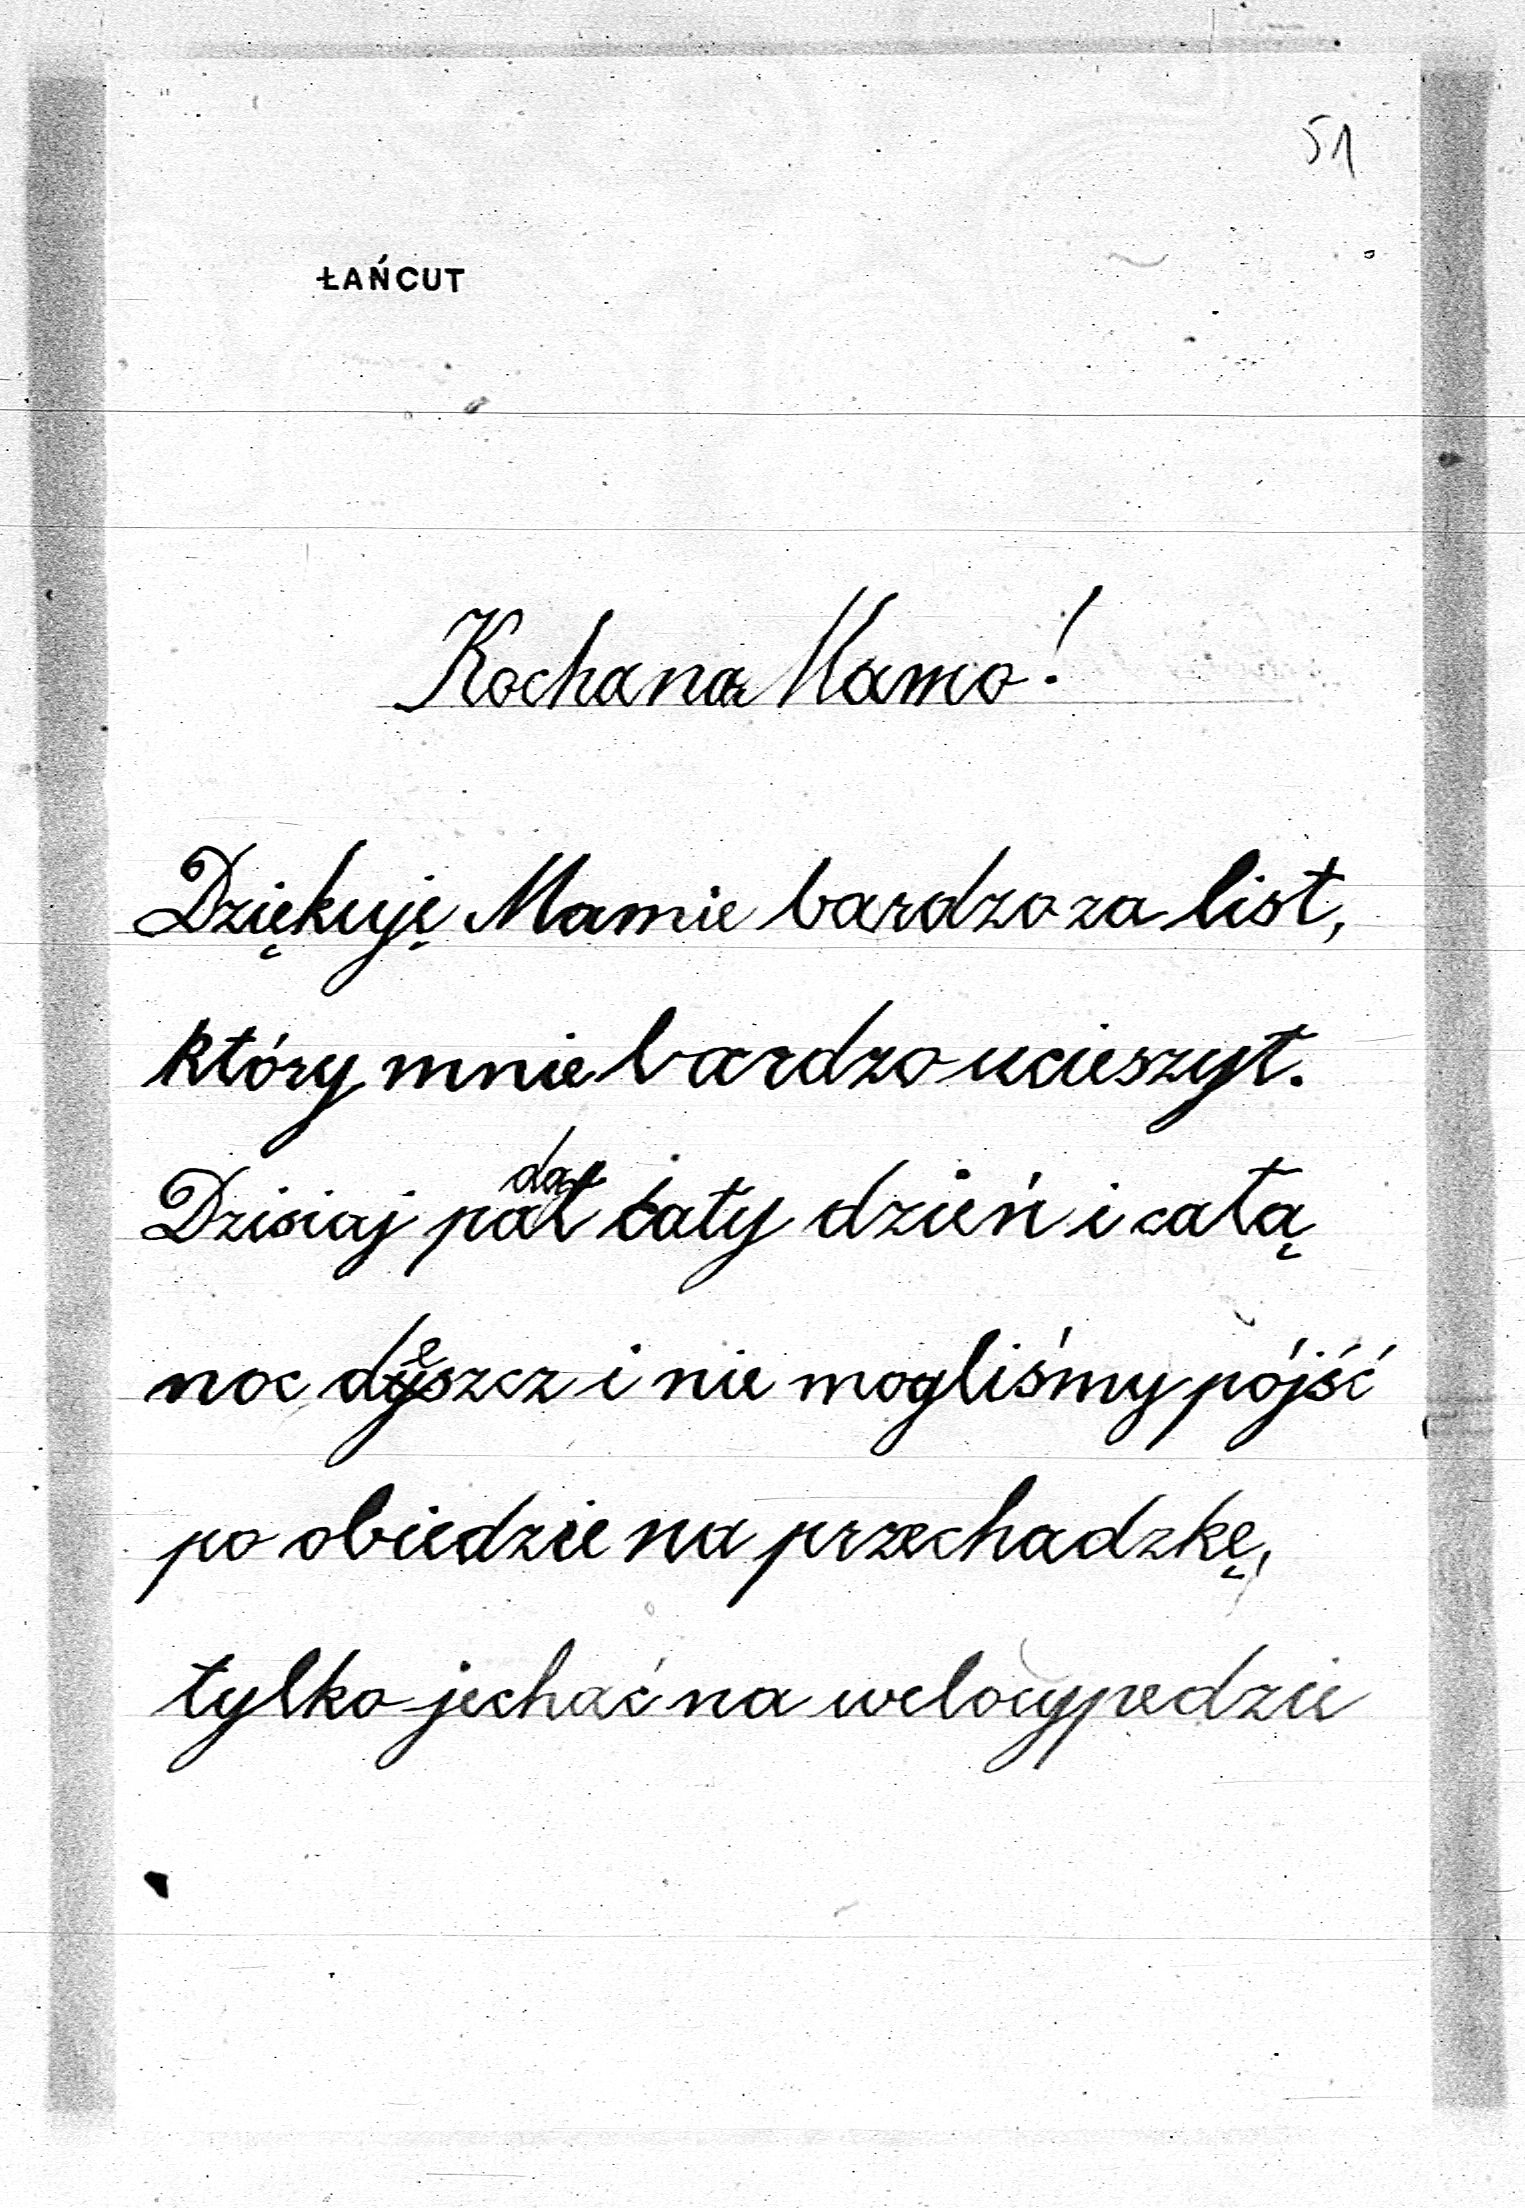 51
ŁAŃCUT
Kochana Mamo!
Dziękuję Mamie bardzo za list,
który mnie bardzo ucieszył.
Dzisiaj padał cały dzień i całą
noc deszcz i nie mogliśmy pójść
po obiedzie na przechadzkę,
tylko jechać na welocypedzie